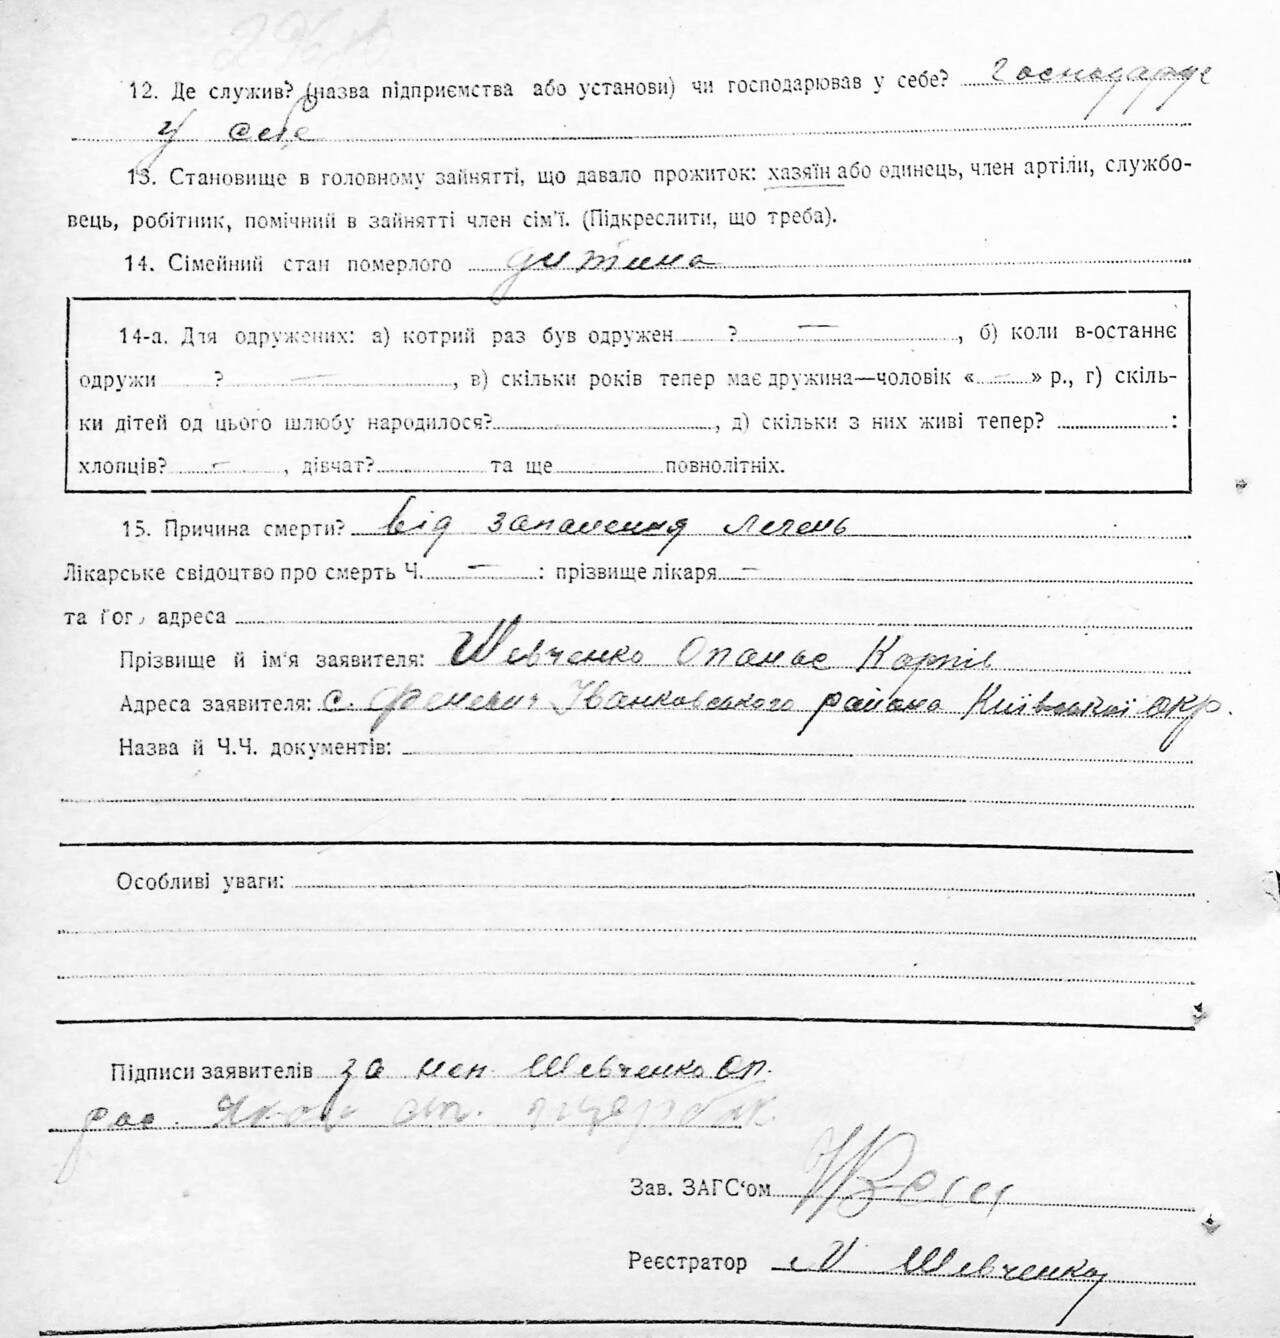 12. Де служив? (назва підприємства або установи) чи господарював у себе? Господарує
у себе
13. Становище в головному зайнятті, що давало прожиток: хазяїн або одинець, член артіли, службо-
вець, робітник, помічний в зайнятті член сім'ї. (Підкреслити, що треба).
14. Сімейний стан померлого дитина
14-а. Для одружених: а) котрий раз був одружен ? — , б) коли в-останнє
одружи ? — , в) скільки років тепер має дружина—чоловік « — » р., г) скіль-
ки дітей од цього шлюбу народилося? , д) скільки з них живі тепер? :
хлопців? — , дівчат? та ще повнолітніх.
15. Причина смерти? від запалення легень
Лікарське свідоцтво про смерть Ч. — : прізвище лікаря —
та його адреса
Прізвище й ім'я заявителя: Шевченко Опанас Карпів
Адреса заявителя: с. Феневич Іванковського района Київської окр.
Назва й Ч.Ч. документів:
Особливі уваги:
Підписи заявителів за неп. Шевченко Оп.
рос.
Зав. ЗАГС'ом
Реєстратор М Шевченко